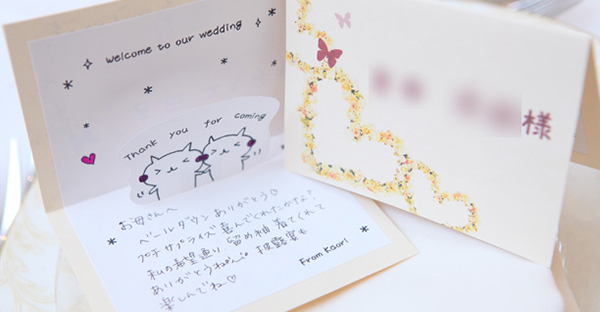 welcome to our wedding
Thank you for coming
お母さんへ
ベールダウンありがとう♡
プチサプライズ喜んでくれたかな?
私の希望通り留め袖着てくれて
ありがとうねー。披露宴も
楽しんでね♡
From Kaori
様